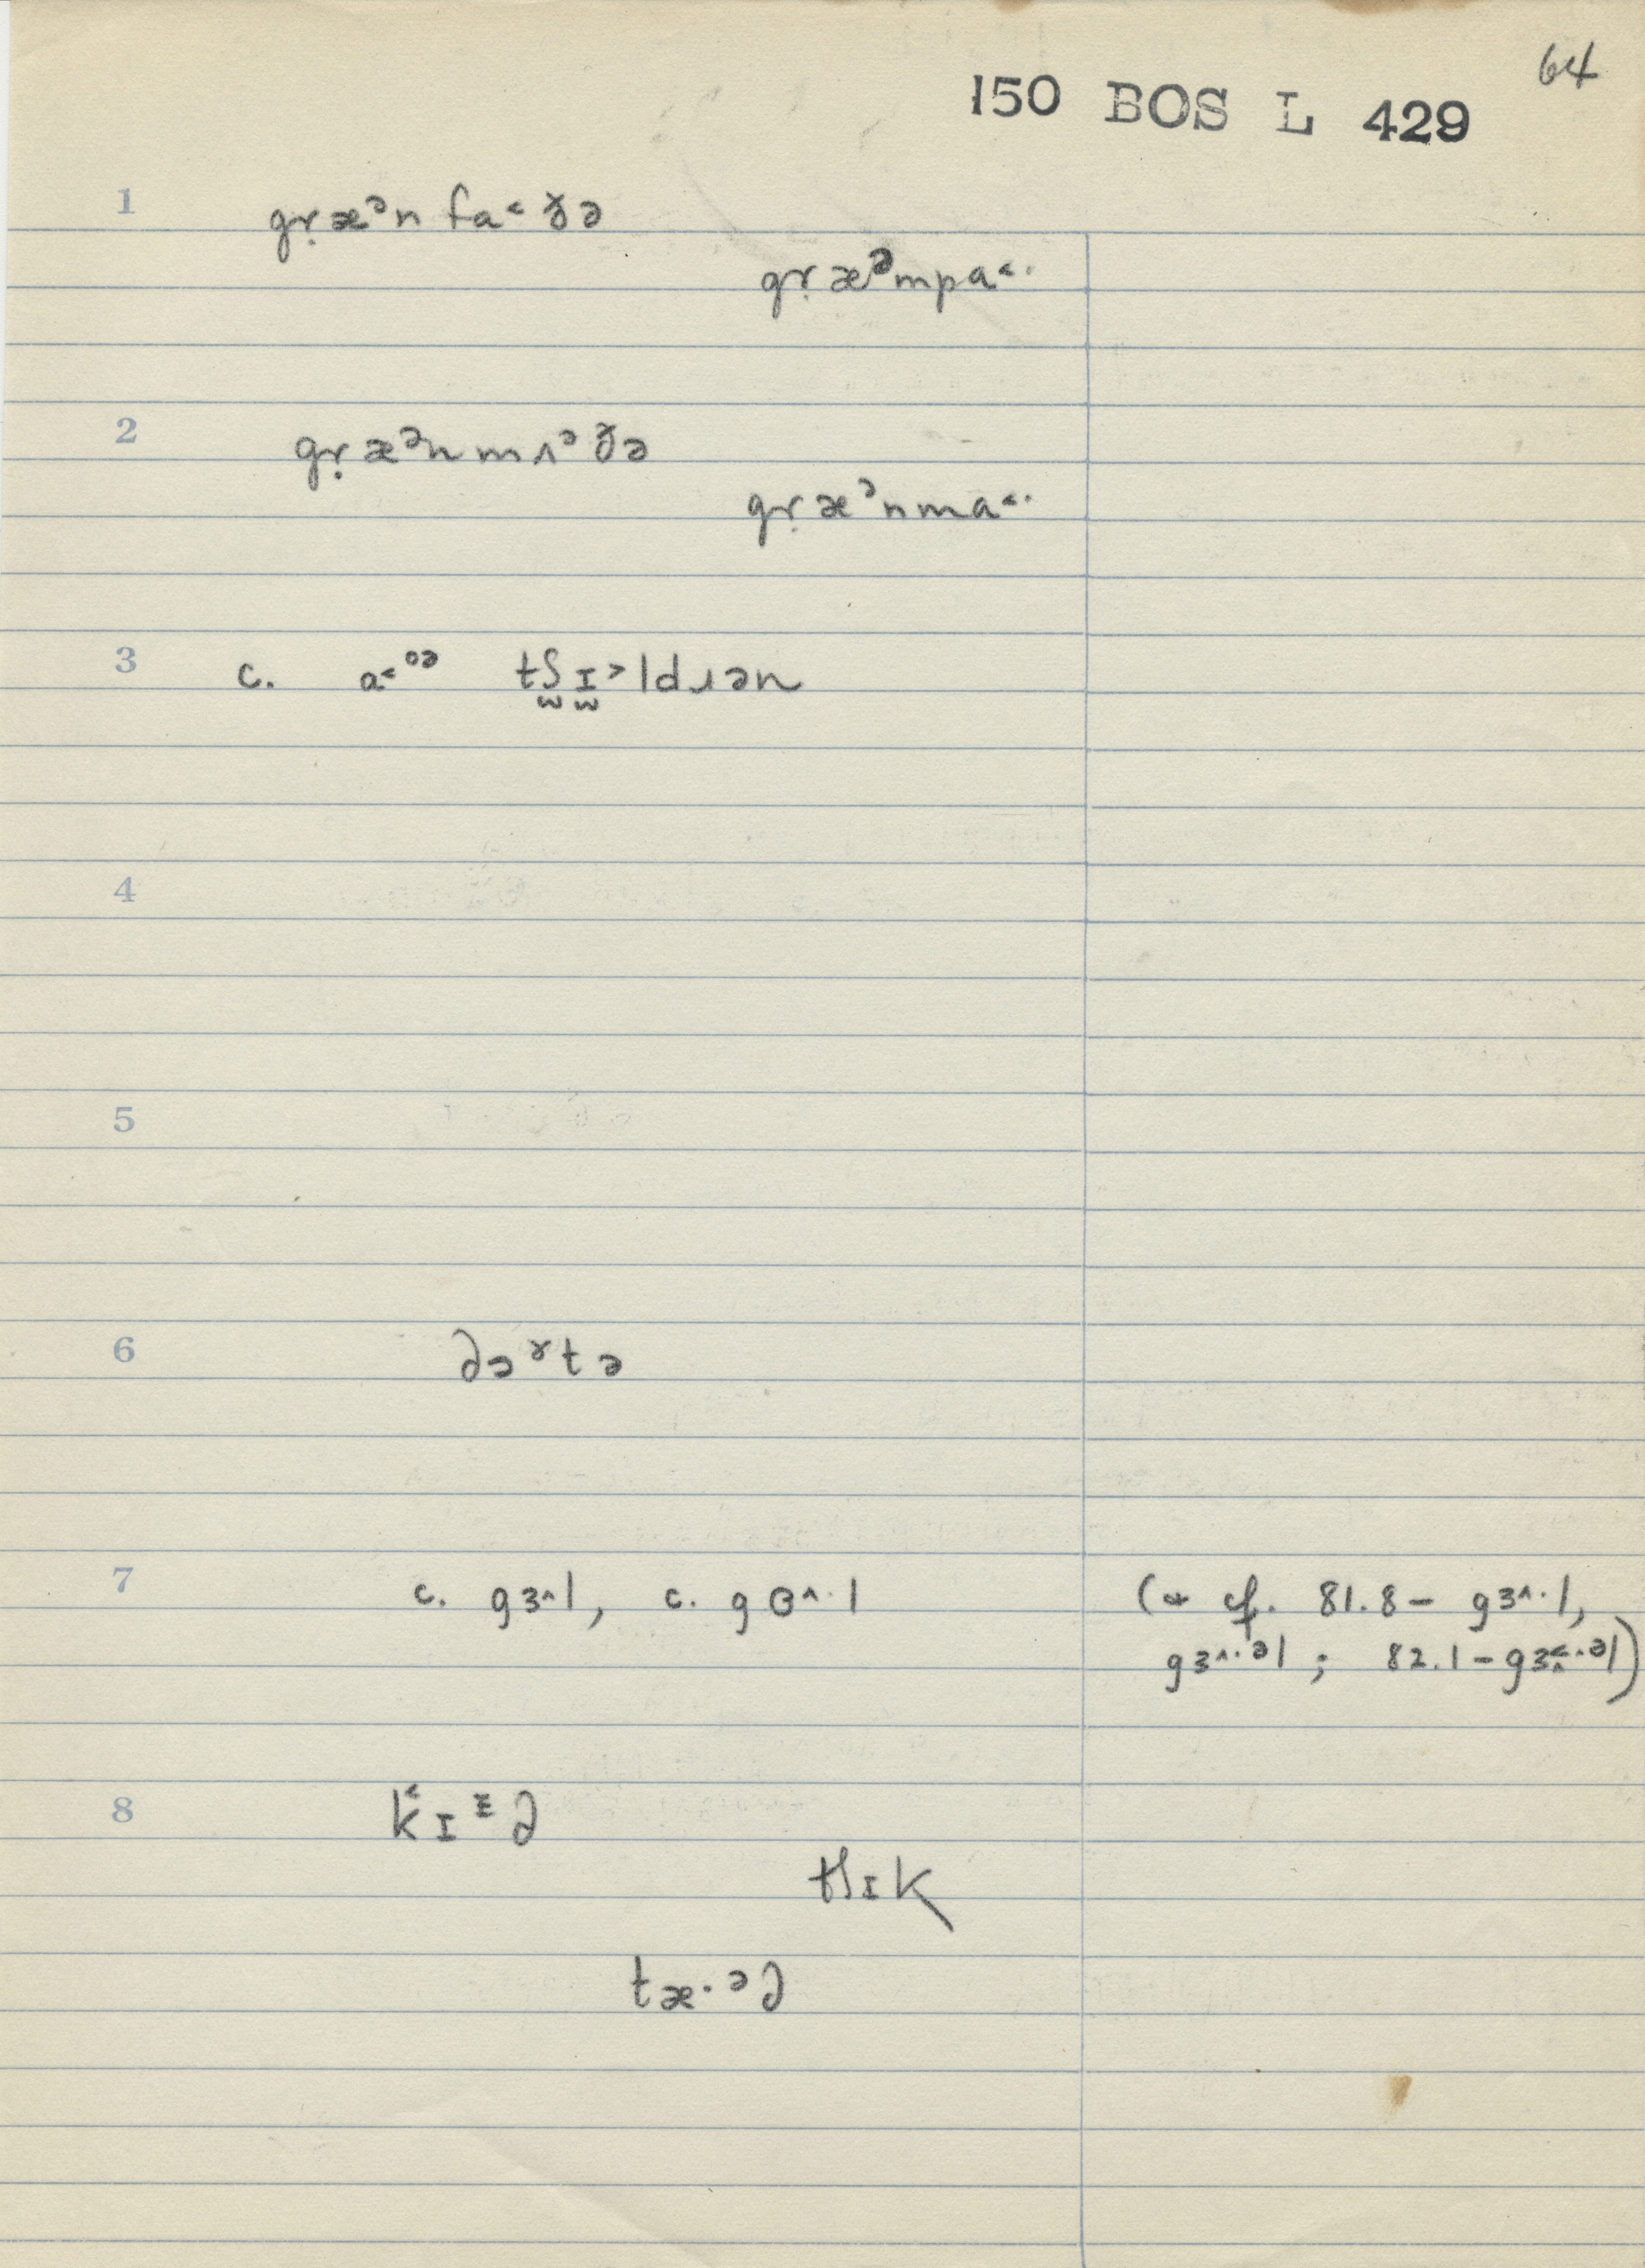 64
150 BOS L 429
1 gṛæᵊn fa˂ ɤ̆ə
gṛæᵊmpa˂·
2 gṛæᵊnmʌᵊɤ̆ə
gṛæᵊnma˂·
3 c. a˂ºᵊ tʃ̫ɪ̫˃ldɹən
4
5
6 ∂ɔˠtə
7 c. gɜ^l, c. gɵ^·l (* cf. 81.8 – gɜ^·l,
gɜ^·ᵊl ; 82.1 –
8 k̂ɪᶾ∂
tʃɪk
tæ·ᵊ∂